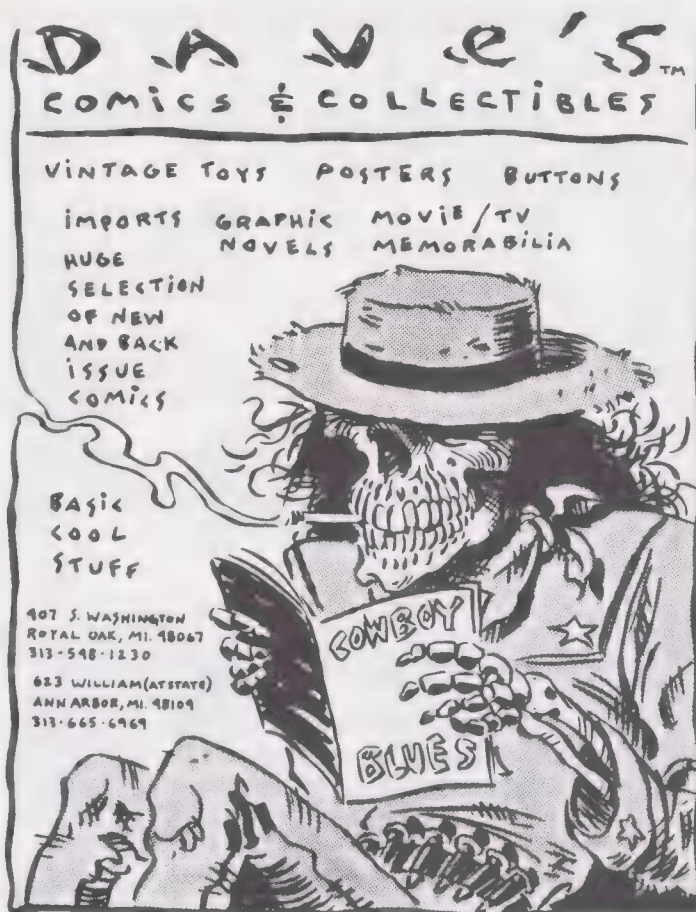 DAVE'S™
COMiCS & COLLECTiBLES
ViNTAGE TOYS POSTERS BUTTONS
iMPORTS GRAPHiC NOVELS MOViE/TV MEMORABiLiA
HUGE
SELECTiON
OF NEW
AND BACK
iSSUE
COMiCS
BASiC
COOL
STUFF
407 S. WASHINGTON
ROYAL OAK, MI. 48067
313-548-1230
623 WILLIAM (AT STATE)
ANN ARBOR, MI. 48104
313-665-6969
COWBOY
BLUES